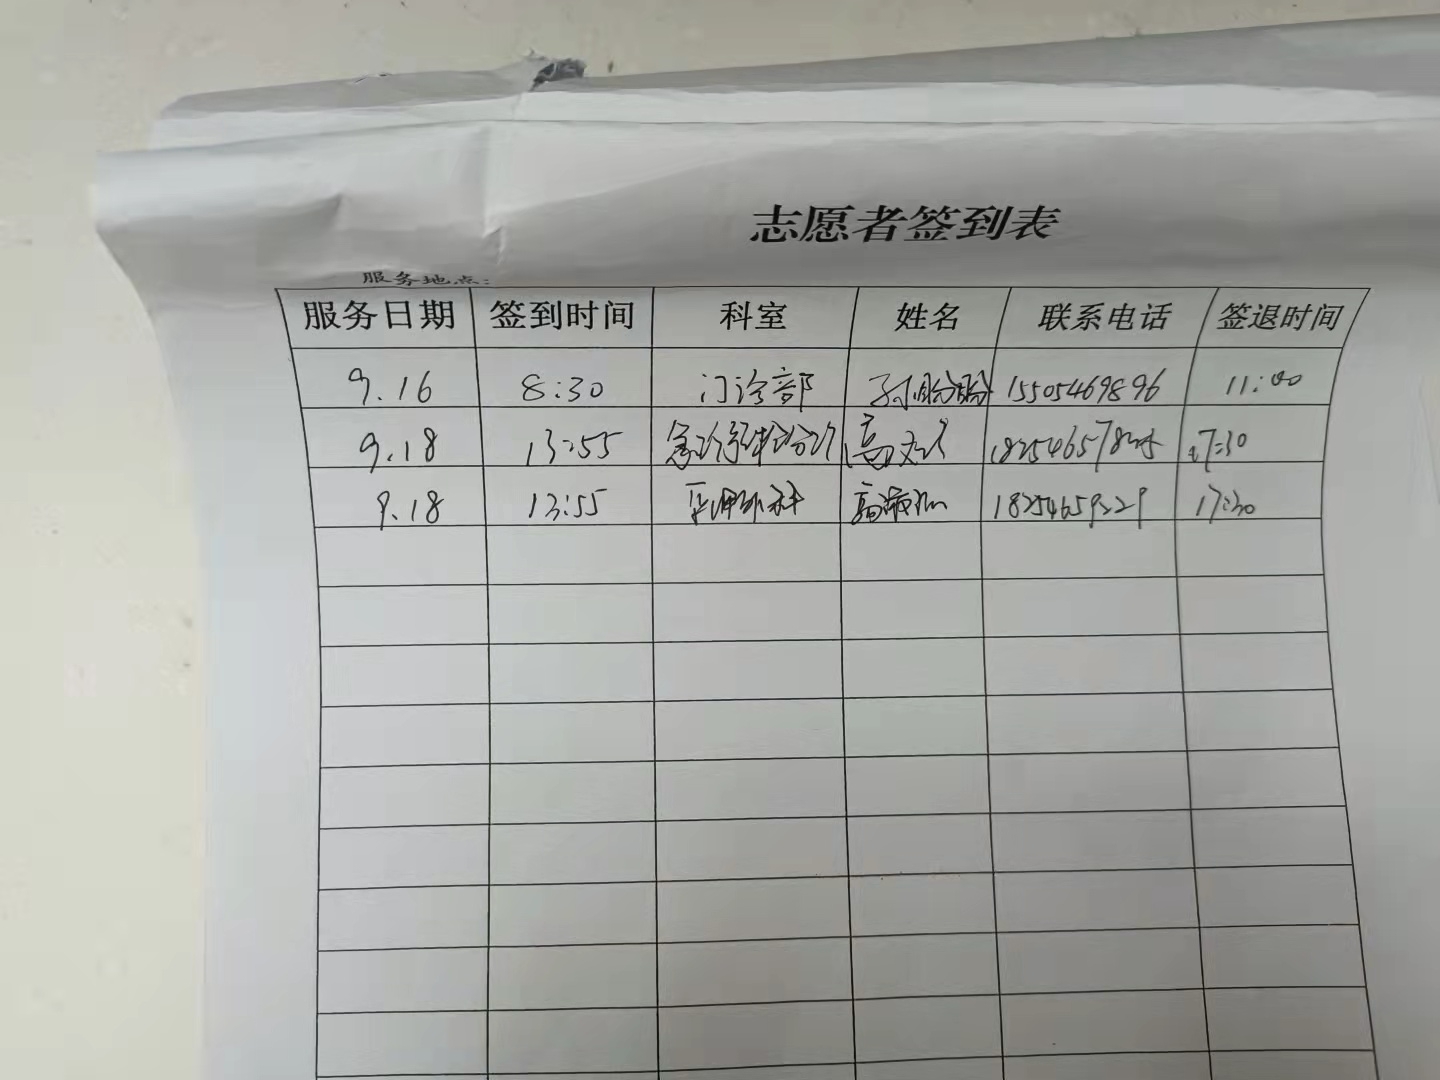 志愿者签到表
服务地点:
服务日期 签到时间 科室 姓名 联系电话 签退时间
9.16 8:30 门诊部 孙盼盼 15505469896 11:00
9.18 13:55 高 17:30
9.18 13:55 外科 高 18254659229 17:30